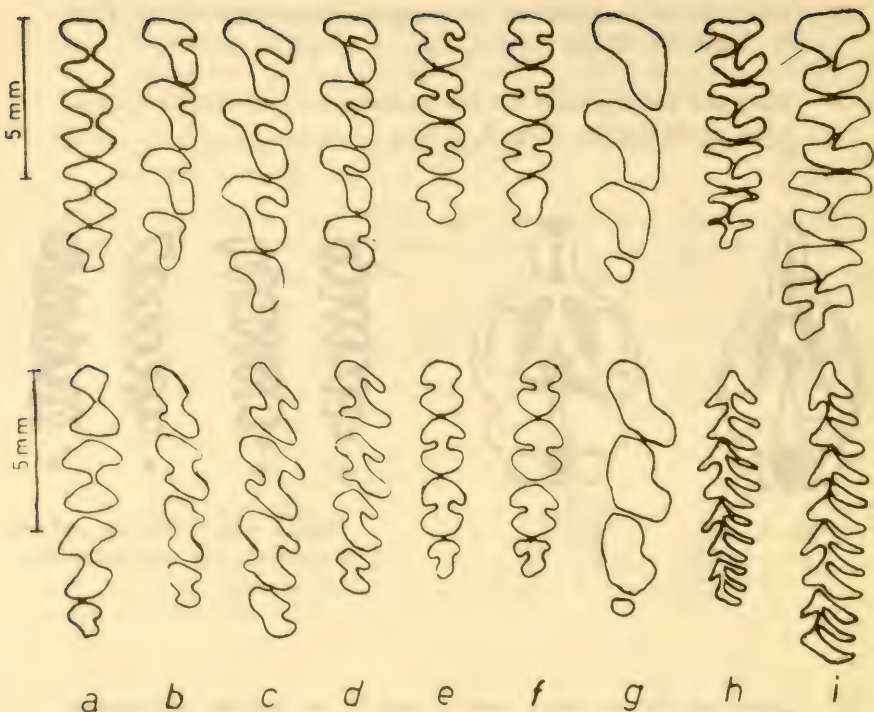 5 mm
5 mm
a b c d e f g h i